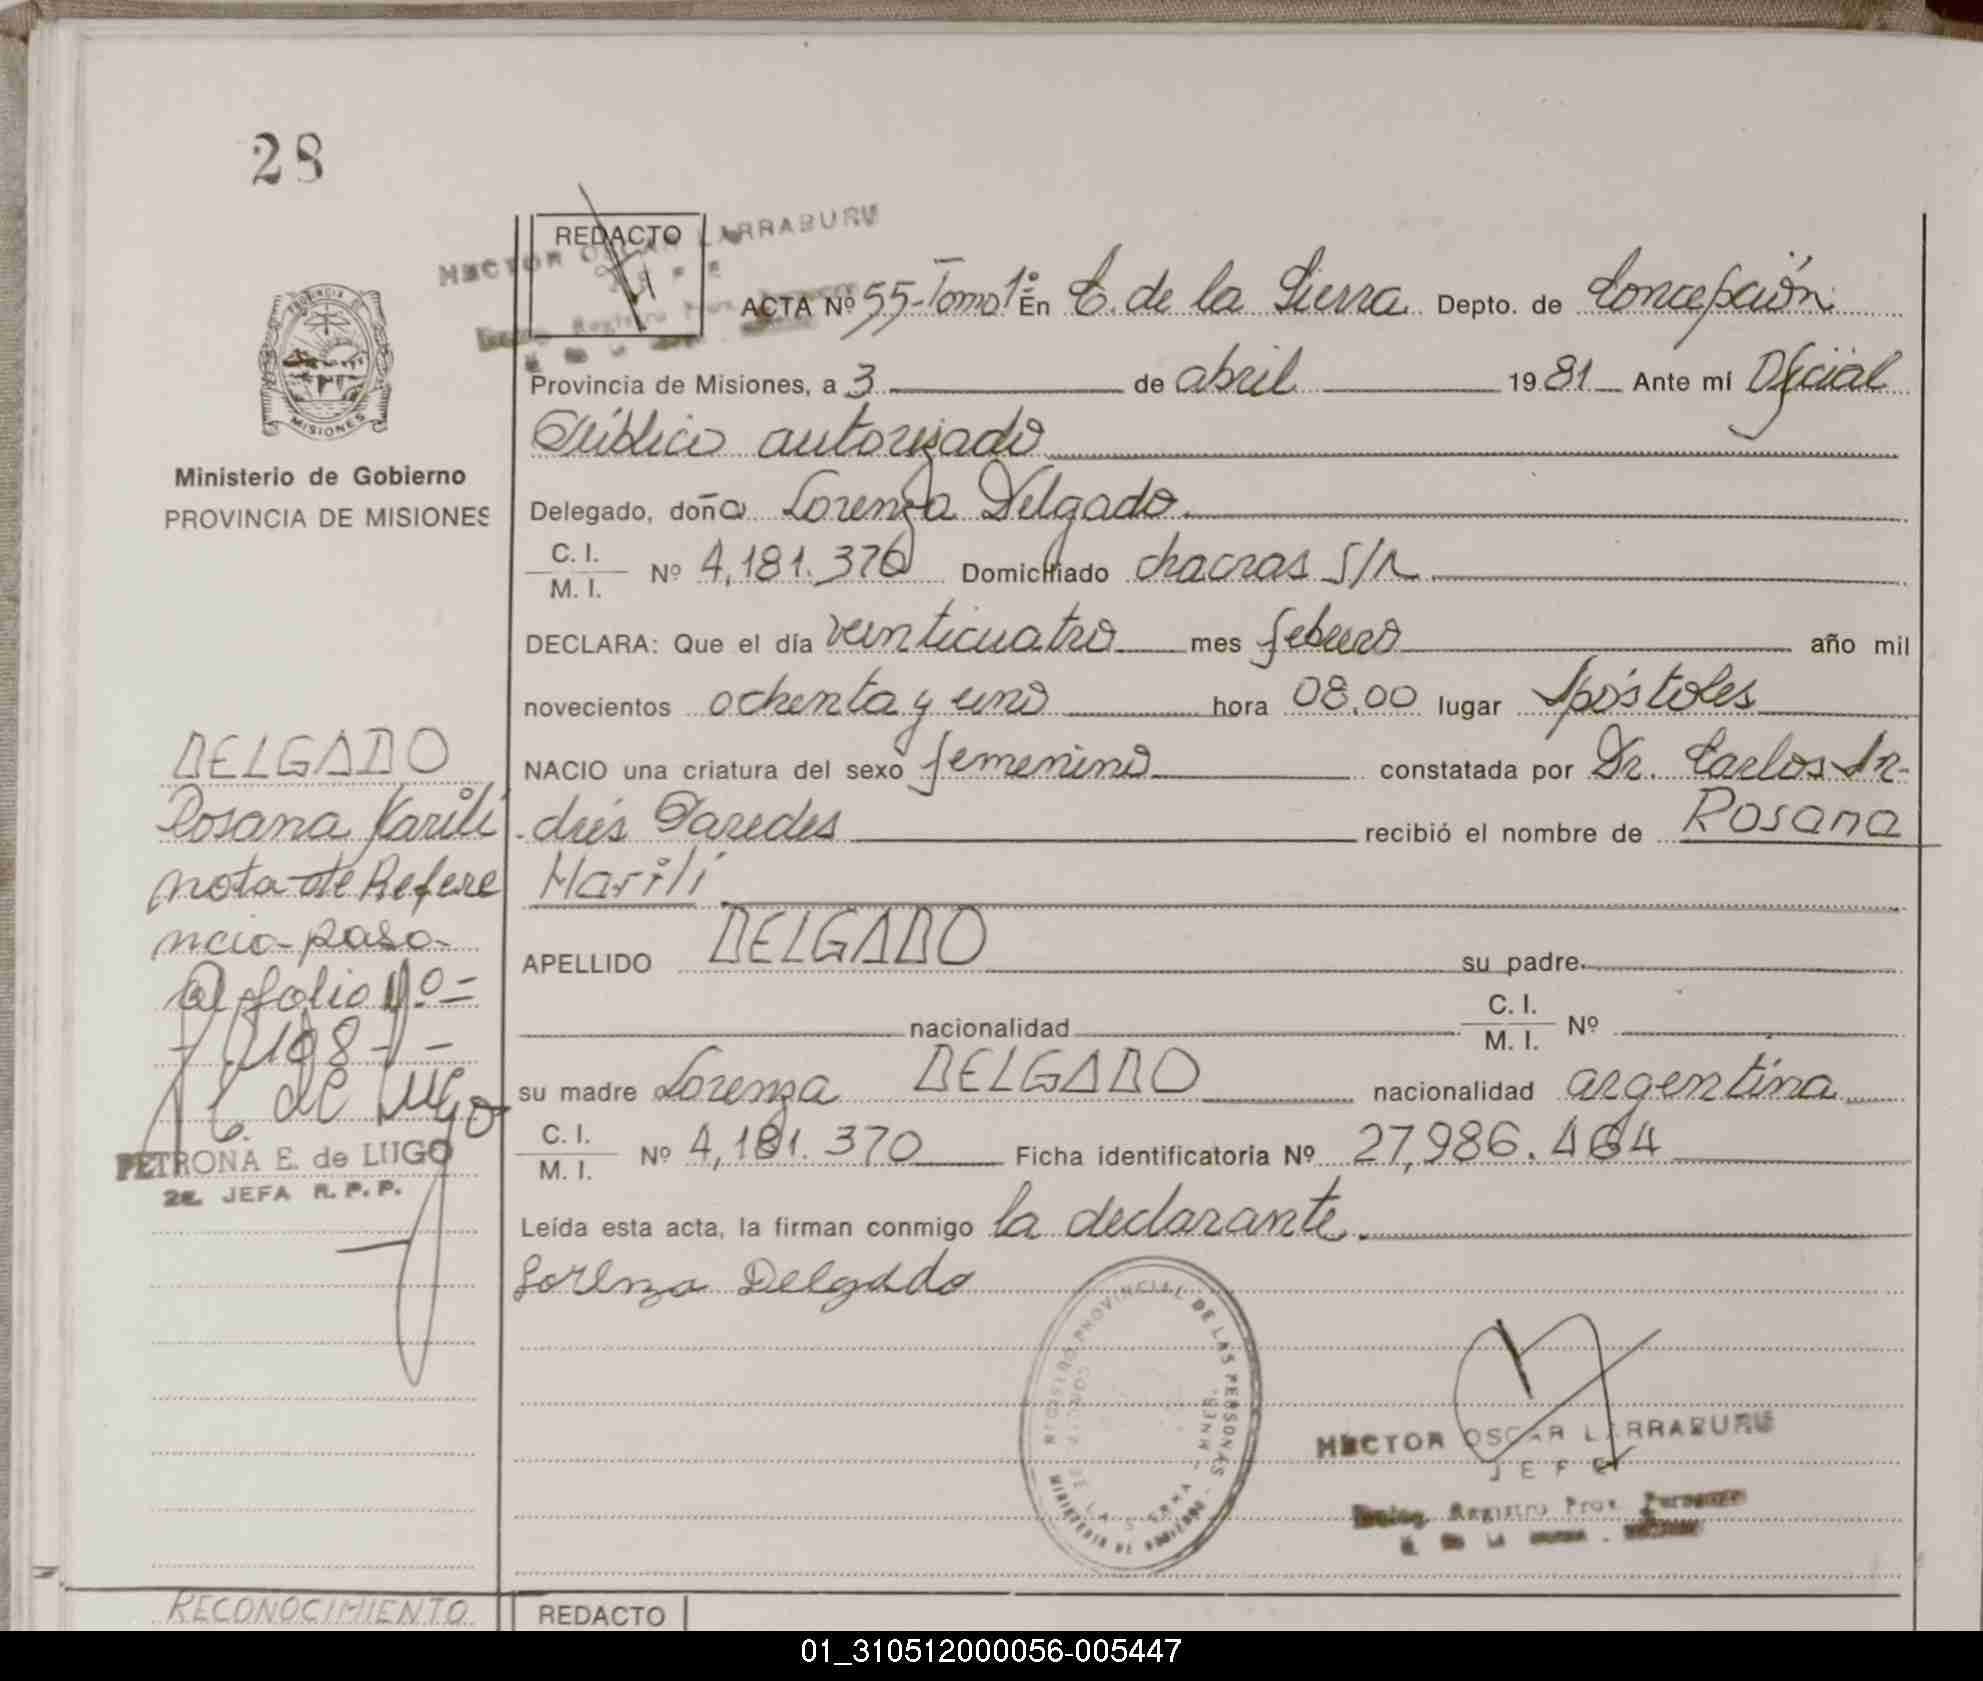 28
HECTOR OSCAR LARRABURU
JEFE
REDACTO
ACTA Nº 55-Tomo 1º En C. de la Sierra Depto. de Concepción
Provincia de Misiones, a 3 de abril 1981 Ante mí Oficial
Público autorizado
PROVINCIA DE MISIONES
Ministerio de Gobierno
PROVINCIA DE MISIONES
Delegado, doña Lorenza Delgado
C. I.
M. I. Nº 4,181.370 Domiciliado chacras S/n
DECLARA: Que el día veinticuatro mes febrero año mil
novecientos ochenta y uno hora 08,00 lugar Apóstoles
NACIO una criatura del sexo femenino constatada por Dr. Carlos An-
drés Paredes recibió el nombre de Rosana
Marilí
APELLIDO DELGADO su padre
nacionalidad C. I.
M. I. Nº
su madre Lorenza DELGADO nacionalidad argentina
C. I.
M. I. Nº 4,181.370 Ficha identificatoria Nº 27,986.464
Leída esta acta, la firman conmigo la declarante.
Lorenza Delgado
DELGADO
Rosana Marilí
nota de Refere
ncia-paso-
al folio Nº=
-108-
de Lugo
PETRONA E. de LUGO
2ª JEFA R. P. P.
REGISTRO PROVINCIAL DE LAS PERSONAS
MINISTERIO DE GOBIERNO
HECTOR OSCAR LARRABURU
JEFE
Registro Prov. Personas
RECONOCIMIENTO
REDACTO
01_310512000056-005447